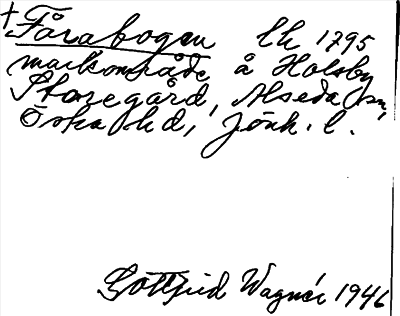 + Fårabogen lh 1795
markområde å Holsby
Storegård, Alseda sn,
Östra hd, Jönk. l.
Gottfrid Wagnér 1946